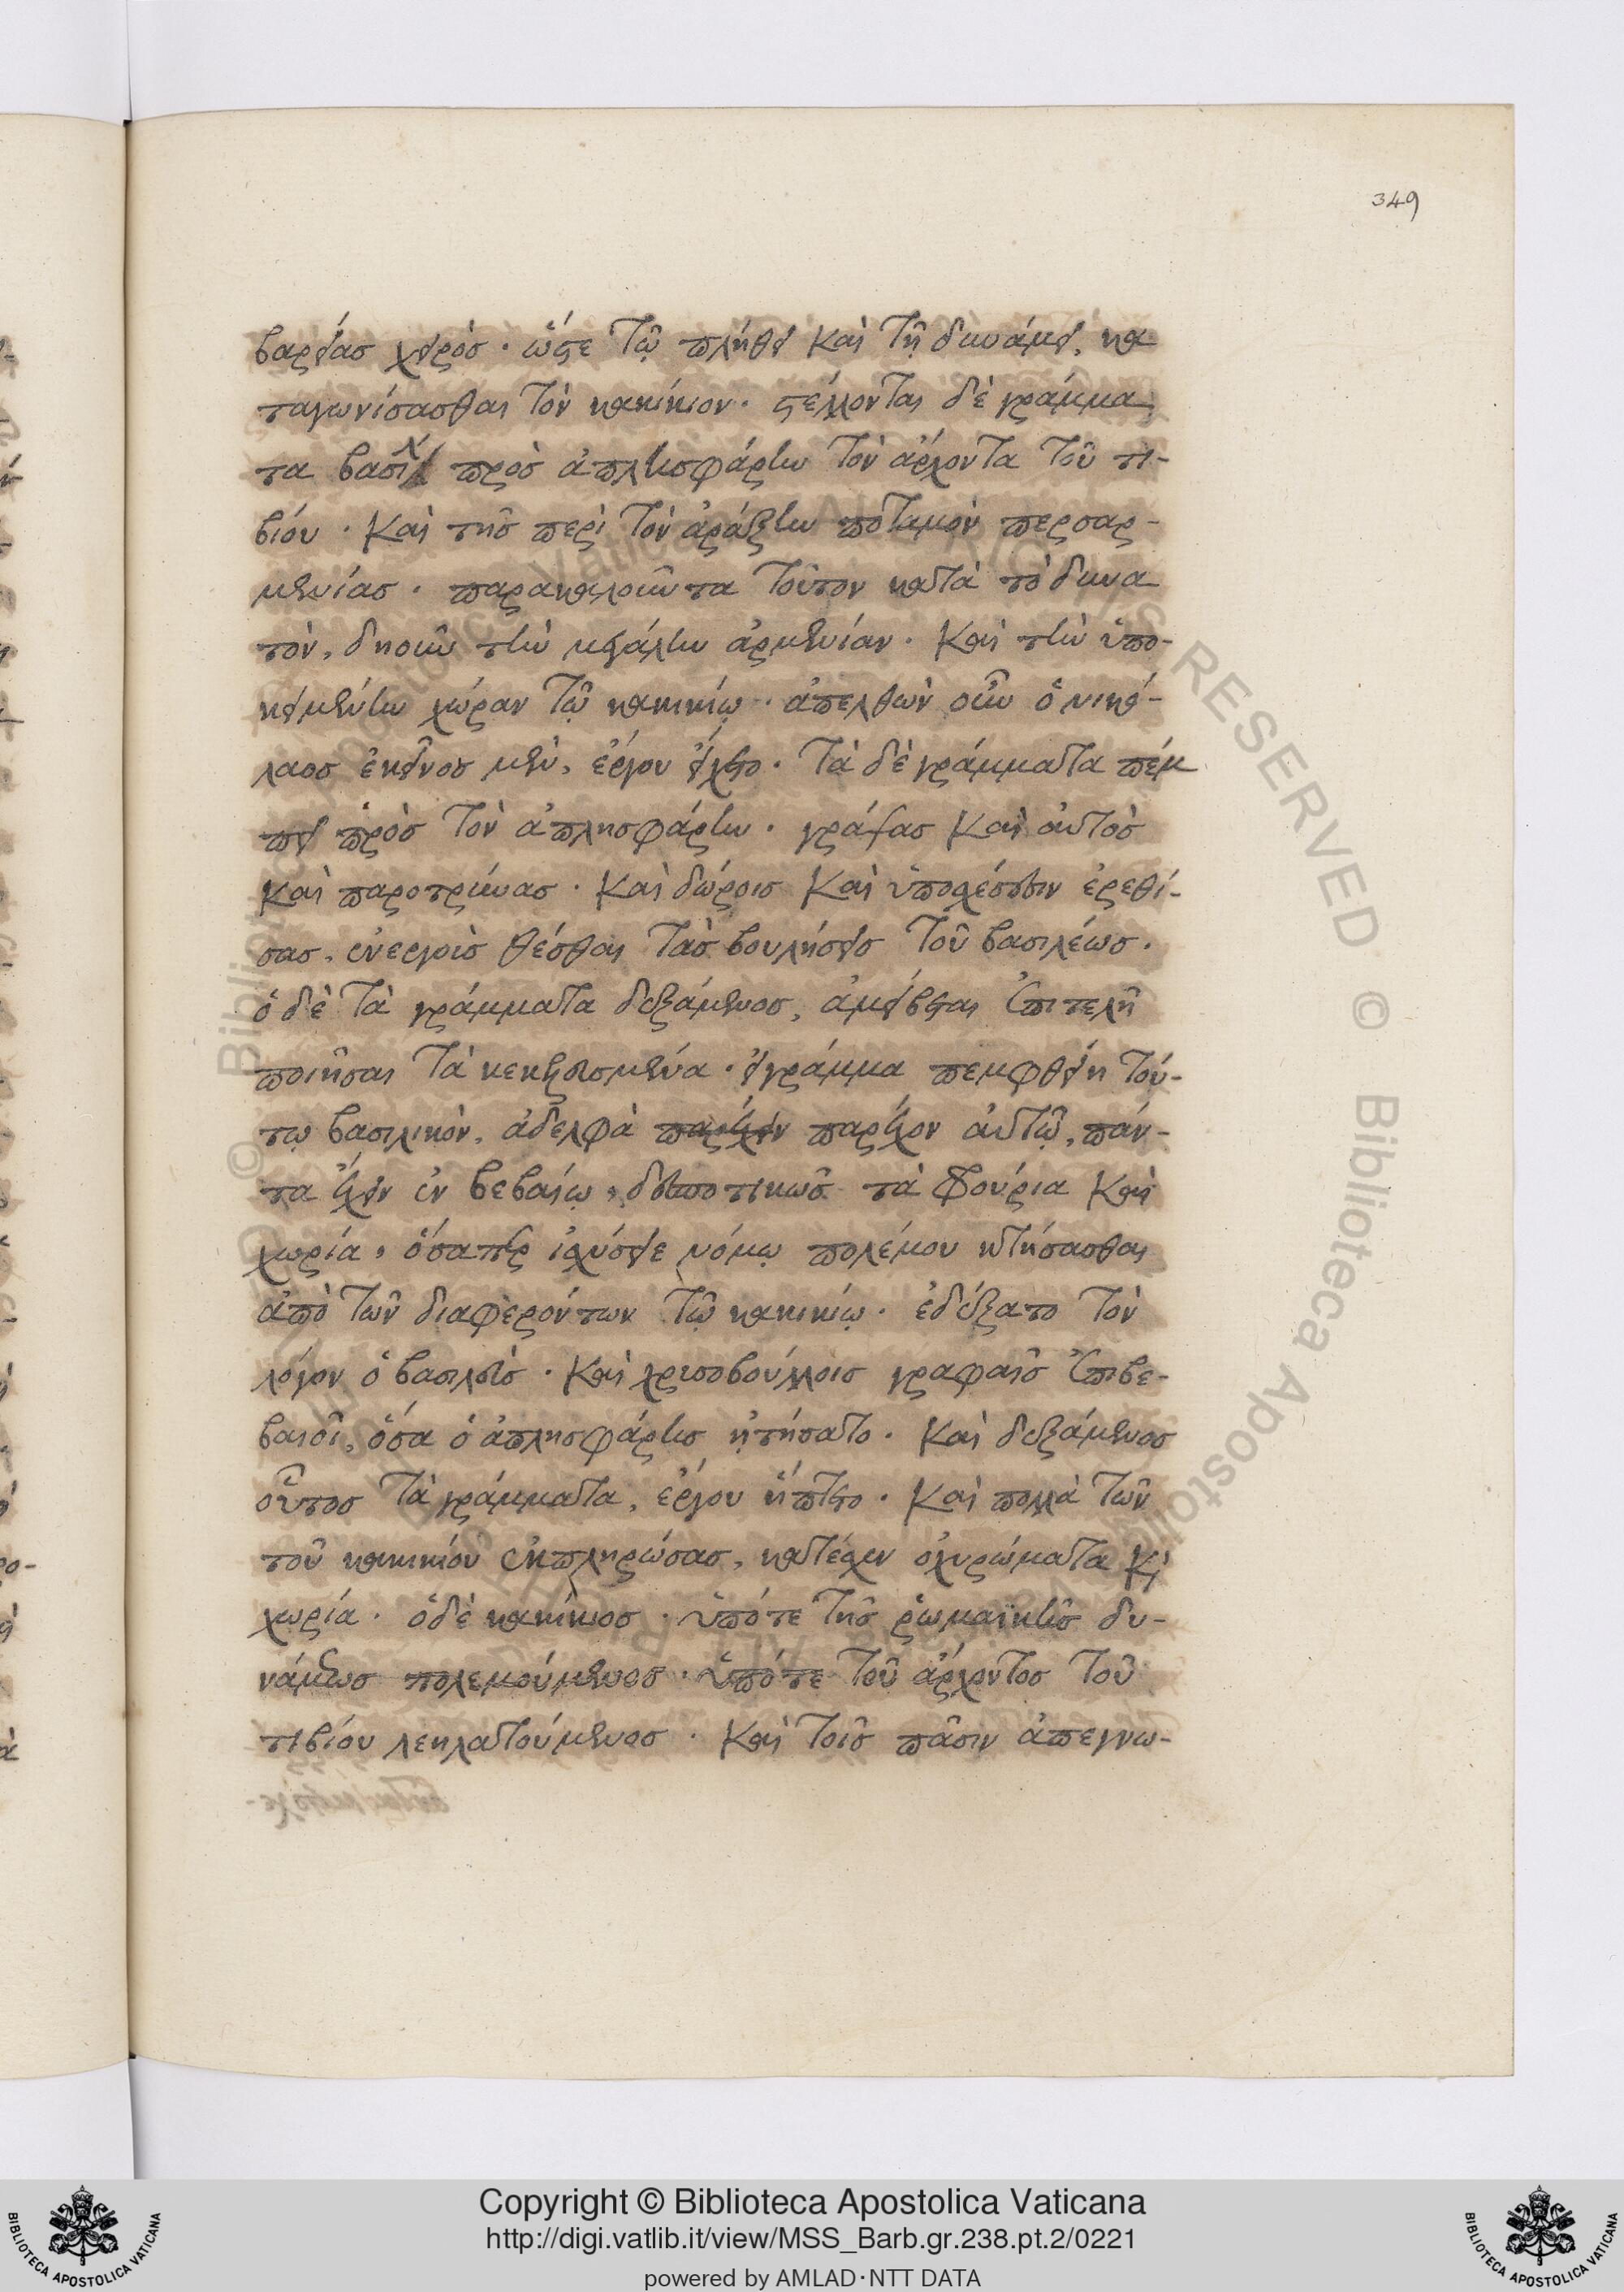 349
βαρείας χειρὸς · ὥστε τῷ πλήθει καὶ τῇ δυνάμει, κα
ταγωνίσασθαι τὸν κακίκιον · στέλλονται δὲ γράμμα
τα βασιλ πρὸς ἀπλησφάρην τὸν ἄρχοντα τοῦ τι-
βίου · καὶ τῆς περὶ τὸν ἀράξην ποταμὸν περσαρ-
μενίας · παρακαλοῦντα τοῦτον κατὰ τὸ δυνα
τὸν, δηοῦν τὴν μεγάλην ἀρμενίαν · καὶ τὴν ὑπο-
κειμένην χώραν τῷ κακικίῳ · ἀπελθὼν οὖν ὁ νικό-
λαος ἐκεῖνος μὲν, ἔργου εἴχετο · τὰ δὲ γράμματα πέμ
πει πρὸς τὸν ἀπλησφάρην · γράψας καὶ αὐτὸς
καὶ παροτρύνας · καὶ δώροις καὶ ὑποσχέσεσιν ἐρεθί-
σας, ἐνεργοὺς θέσθαι τὰς βουλήσεις τοῦ βασιλέως ·
ὁ δὲ τὰ γράμματα δεξάμενος, ἀμείβεται ἐπιτελῆ
ποιῆσαι τὰ κεκελευσμένα · εἰ γράμμα πεμφθείη τού-
τῳ βασιλικὸν, ἀδελφὰ παρέχειν παρέχον αὐτῷ, πάν-
τα ἔχειν ἐν βεβαίῳ, δεσποτικῶς τὰ φρούρια καὶ
χωρία, ὅσαπερ ἰσχύσειε νόμῳ πολέμου κτήσασθαι
ἀπὸ τῶν διαφερόντων τῷ κακικίῳ · ἐδέξατο τὸν
λόγον ὁ βασιλεὺς · καὶ χρυσοβούλλοις γραφαῖς ἐπιβε-
βαιοῖ, ὅσα ὁ ἀπλησφάρης ᾐτήσατο · καὶ δεξάμενος
οὗτος τὰ γράμματα, ἔργου ἥπτετο · καὶ πολλὰ τῶν
τοῦ κακικίου ἐκπληρώσας, κατέσχεν ὀχυρώματα κὶ
χωρία · ὁ δὲ κακίκιος · ὑπό τε τῆς ῥωμαϊκῆς δυ-
νάμεως πολεμούμενος · ὑπό τε τοῦ ἄρχοντος τοῦ
τιβίου λεηλατούμενος · καὶ τοῖς πᾶσιν ἀπεγνω-
Copyright © Biblioteca Apostolica Vaticana
http://digi.vatlib.it/view/MSS_Barb.gr.238.pt.2/0221
powered by AMLAD·NTT DATA